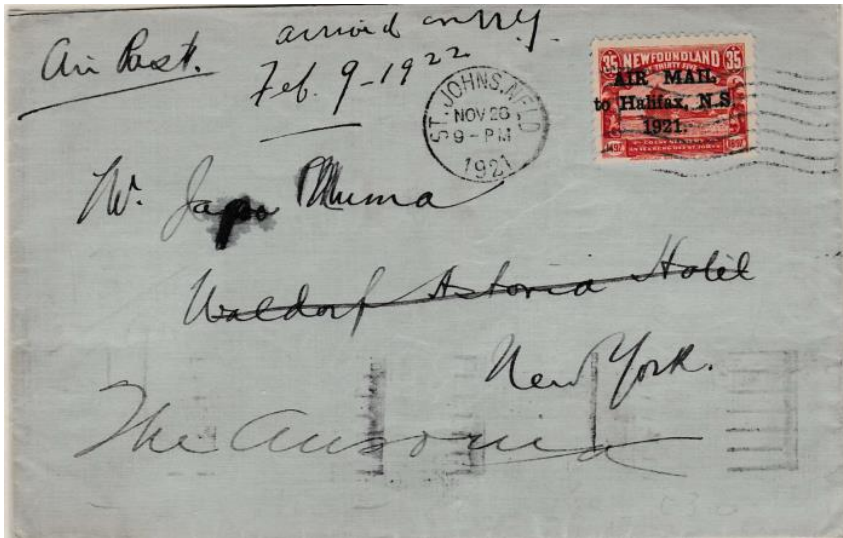 Air Post.
arrived in N.Y.
Feb. 9 - 1922
ST. JOHNS, NFLD
NOV 26
9 - PM
1921
35 NEWFOUNDLAND 35
THIRTY FIVE
AIR MAIL
to Halifax, N.S.
1921.
1497 1897
Mr. Muma
Waldorf Astoria Hotel
New York.
The Ansonia